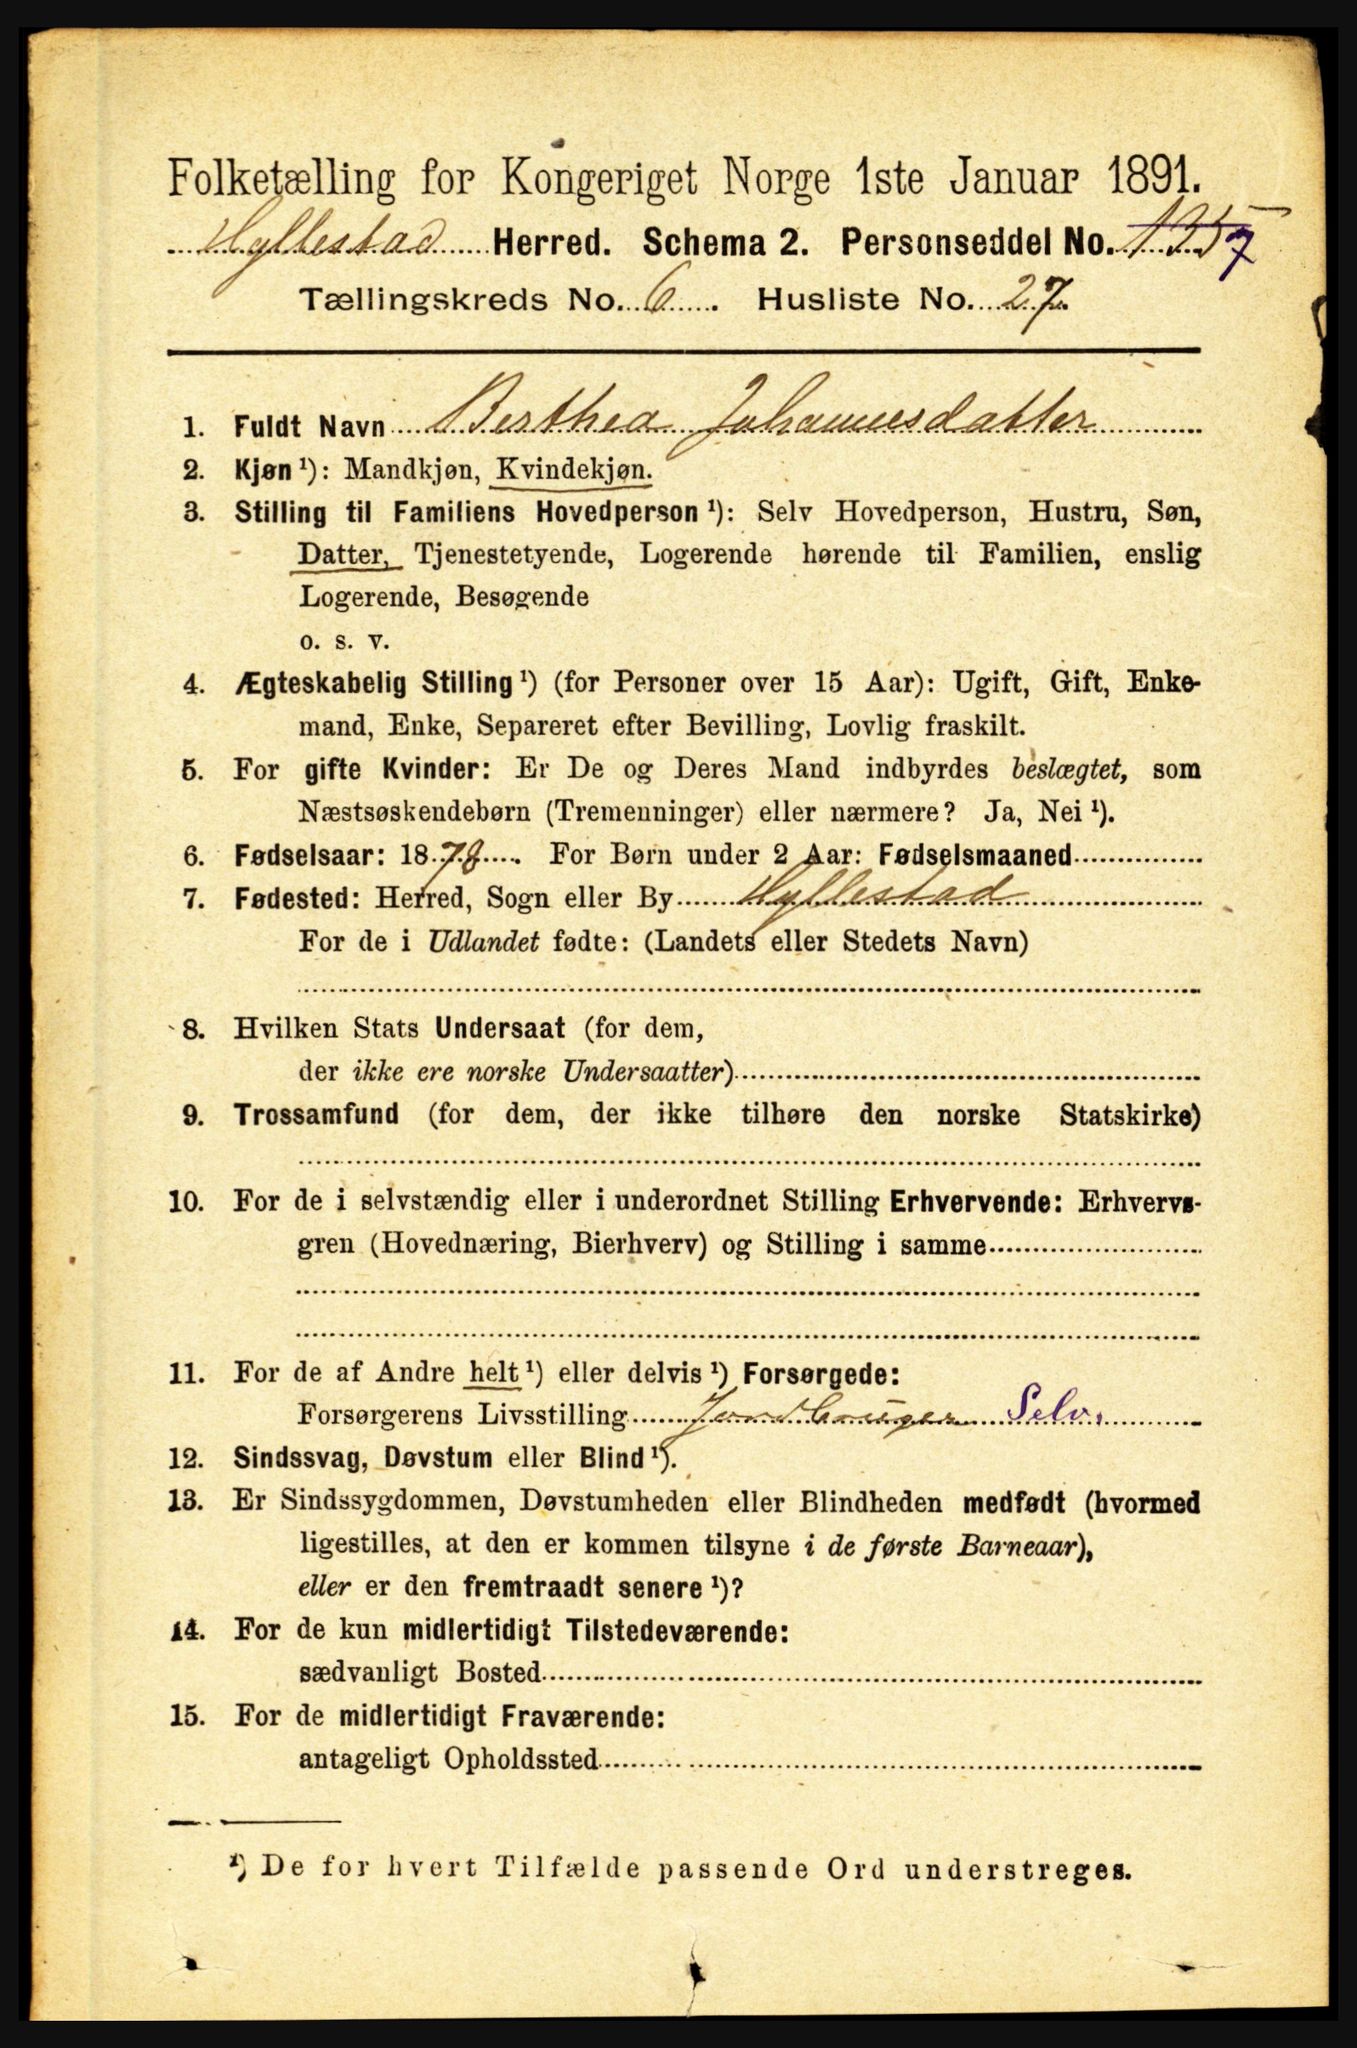 Folketælling for Kongeriget Norge 1ste Januar 1891.
Hyllestad Herred. Schema 2. Personseddel No. 135 7
Tællingskreds No. 6. Husliste No. 27.
1. Fuldt Navn Berthea Johannesdatter
2. Kjøn ¹): Mandkjøn, Kvindekjøn.
3. Stilling til Familiens Hovedperson ¹): Selv Hovedperson, Hustru, Søn,
Datter, Tjenestetyende, Logerende hørende til Familien, enslig
Logerende, Besøgende
o. s. v.
4. Ægteskabelig Stilling ¹) (for Personer over 15 Aar): Ugift, Gift, Enke-
mand, Enke, Separeret efter Bevilling, Lovlig fraskilt.
5. For gifte Kvinder: Er De og Deres Mand indbyrdes beslægtet, som
Næstsøskendebørn (Tremenninger) eller nærmere? Ja, Nei ¹).
6. Fødselsaar: 1878. For Børn under 2 Aar: Fødselsmaaned
7. Fødested: Herred, Sogn eller By Hyllestad
For de i Udlandet fødte: (Landets eller Stedets Navn)
8. Hvilken Stats Undersaat (for dem,
der ikke ere norske Undersaatter)
9. Trossamfund (for dem, der ikke tilhøre den norske Statskirke)
10. For de i selvstændig eller i underordnet Stilling Erhvervende: Erhvervs-
gren (Hovednæring, Bierhverv) og Stilling i samme
11. For de af Andre helt ¹) eller delvis ¹) Forsørgede:
Forsørgerens Livsstilling Jordbruger Selv.
12. Sindssvag, Døvstum eller Blind ¹).
13. Er Sindssygdommen, Døvstumheden eller Blindheden medfødt (hvormed
ligestilles, at den er kommen tilsyne i de første Barneaar),
eller er den fremtraadt senere ¹)?
14. For de kun midlertidigt Tilstedeværende:
sædvanligt Bosted
15. For de midlertidigt Fraværende:
antageligt Opholdssted
¹) De for hvert Tilfælde passende Ord understreges.